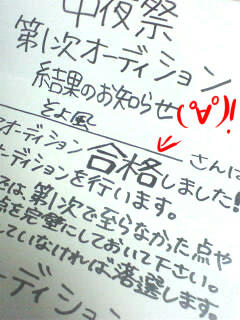 中夜祭
第1次オーディション
結果のお知らせ(°A°)!
そよ風 さんは
オーディション合格しました!
オーディションを行います。
では第1次で至らなかった点や
点を完璧にしておいて下さい。
していなければ落選します。
オーディション